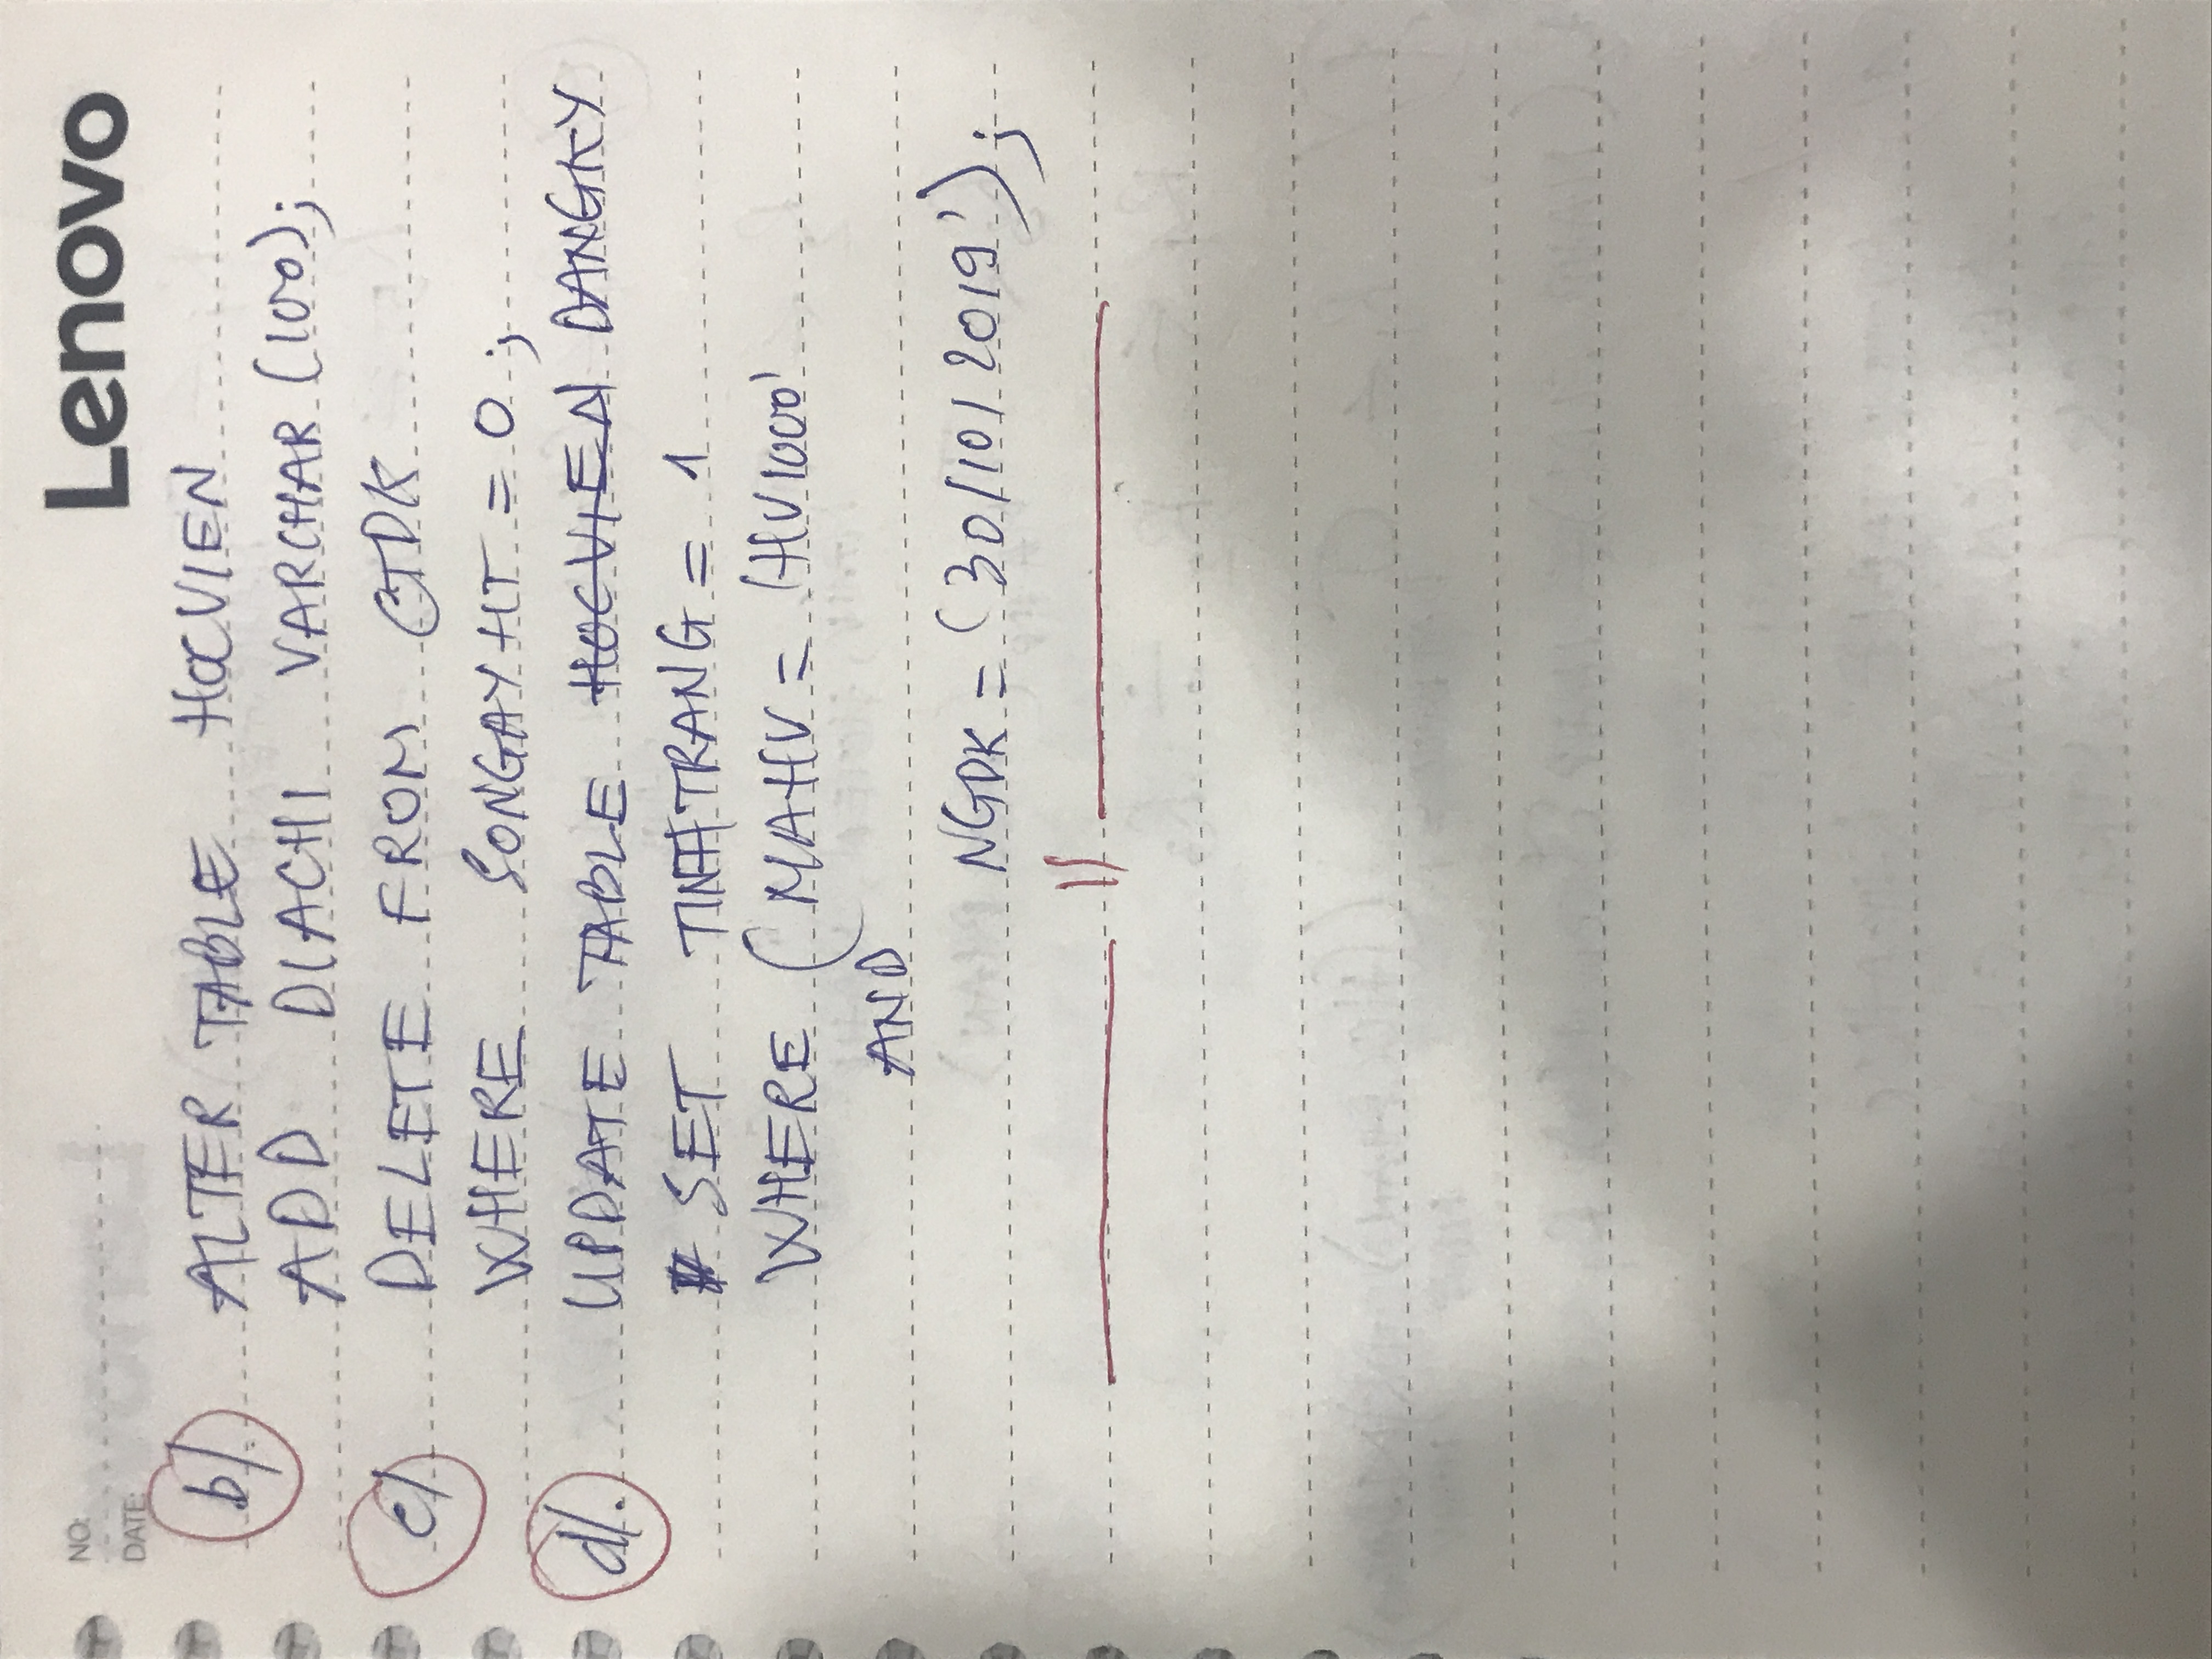 NO:
Lenovo
DATE:
b/. ALTER TABLE HOCVIEN
ADD DIACHI VARCHAR (100);
c/ DELETE FROM CTDK
WHERE SONGAYHT = 0 ;
d/. UPDATE TABLE HOCVIEN DANGKY
SET TINHTRANG = 1
WHERE ( MAHV = 'HV1000'
AND
NGDK = '30/10/2019');